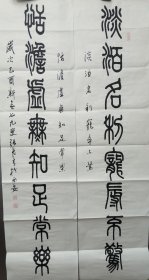 淡泊名利寵辱不驚
淡泊名利寵辱不驚
恬澹虛無知足常樂
恬澹虛無知足常樂
歲次